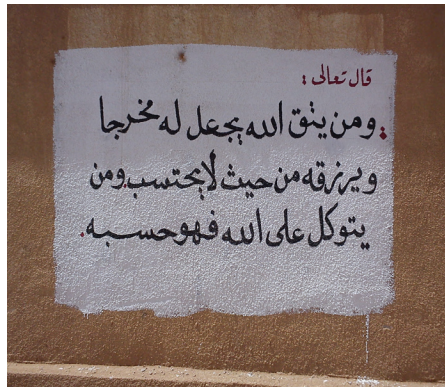 قال تعالى :
ومن يتق الله يجعل له مخرجا
ويرزقه من حيث لا يحتسب ومن
يتوكل على الله فهو حسبه